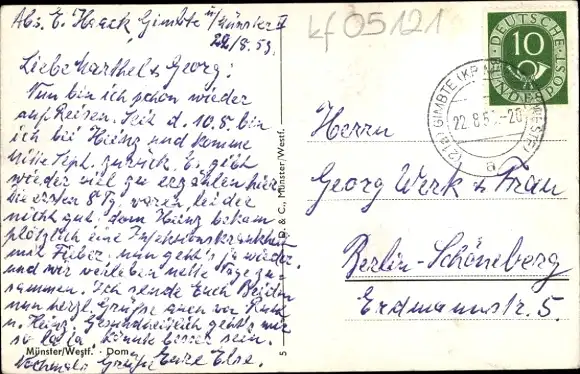 Abs. E. Haack Gimbte ü/Münster
22/8.53.
kf 05121
DEUTSCHE
BUNDESPOST
10
GIMBTE
22.8.5
a
Liebe Marthel & Georg!
Nun bin ich schon wieder
auf Reisen. Seit d. 10.8. bin
ich bei Heinz und komme
Mitte Sept. zurück. Es gibt
wieder viel zu erzählen hier
die ersten 8 Tg. waren leider
nicht gut, denn Heinz bekam
plötzlich eine Infektionskrankht
mit Fieber, nun geht's ja wieder
und wir verleben nette Tage zu-
sammen. Ich sende Euch Beiden
nun herzl. Grüße auch von Ruth
u. Heinz. Gesundheitlich geht's mir
so la la könnte besser sein.
Nochmals Grüße Eure Else.
Herrn
Georg Werk & Frau
Berlin-Schöneberg
Erdmannstr. 5.
& C., Münster/Westf.
5
Münster/Westf. · Dom